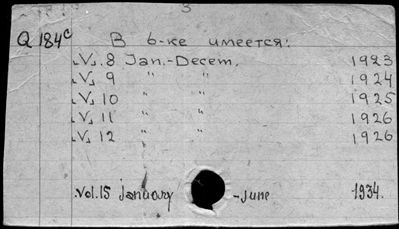 3
Q 184c В б-ке имеется:
V. 8 Jan.-Decem. 1923
V. 9 " " 1924
V. 10 " " 1925
V. 11 " " 1926
V. 12 " " 1926
Vol. 15 January - June 1934.